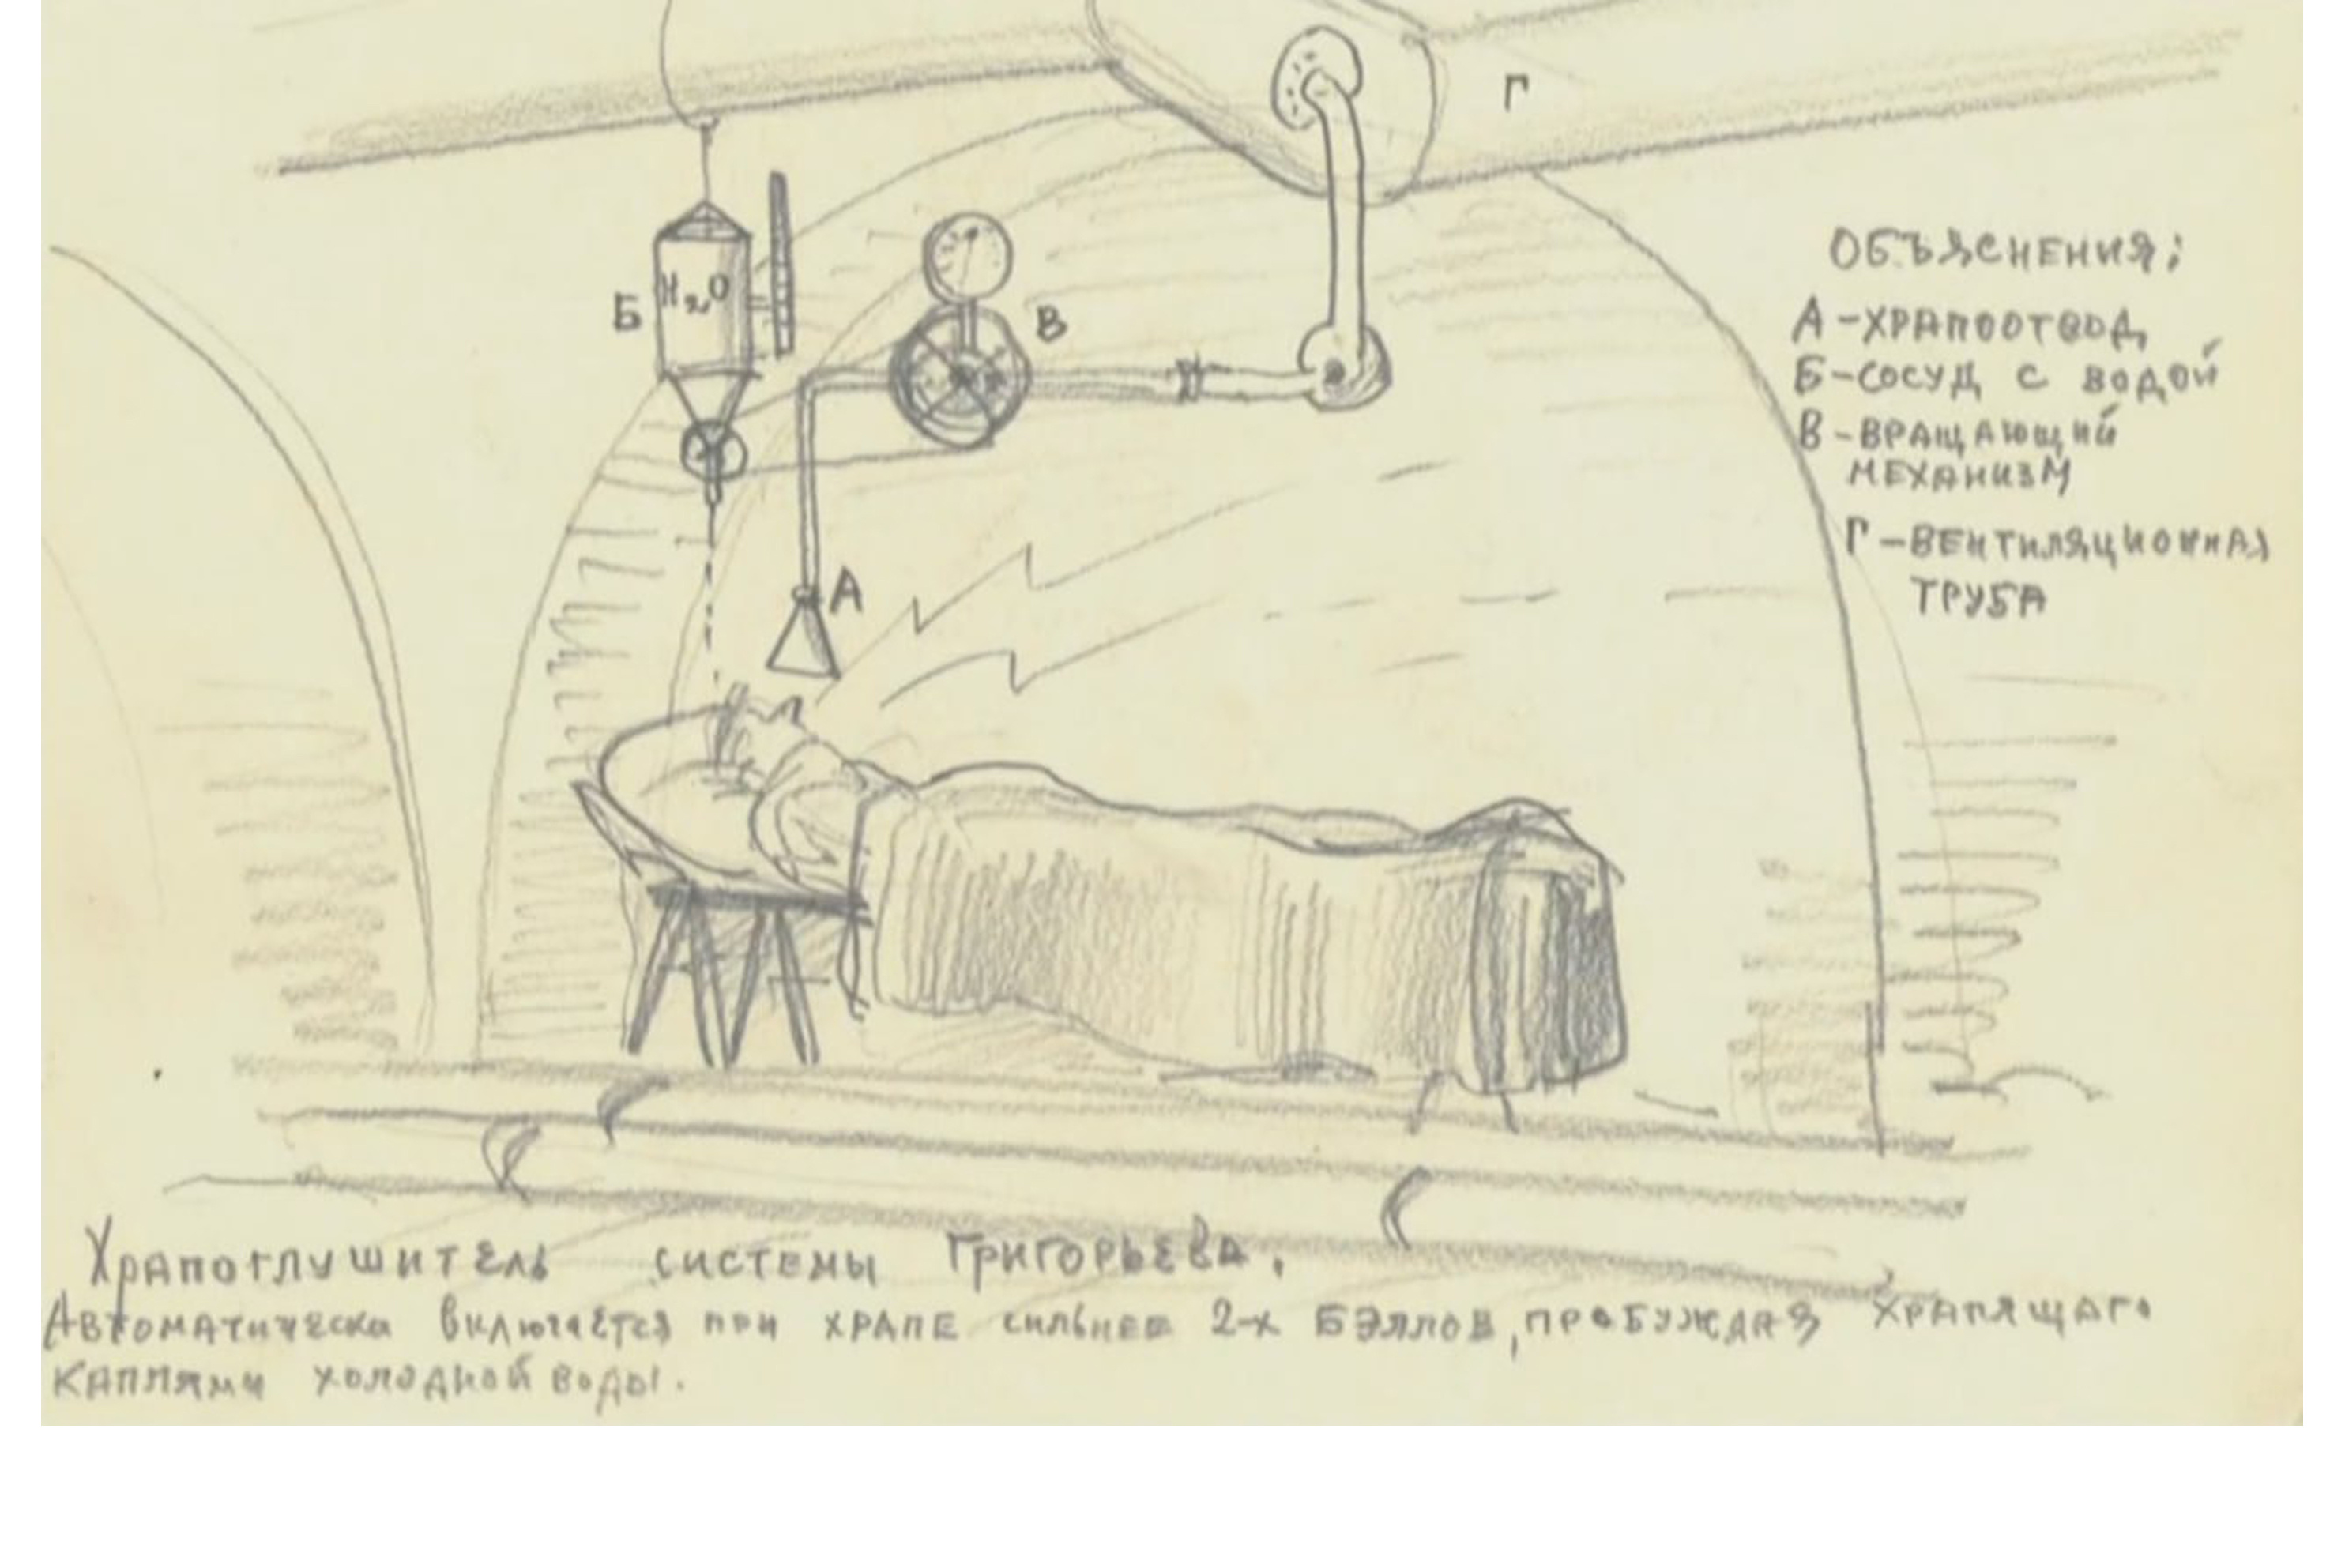 Г
Б
H2O
В
А
ОБЪЯСНЕНИЯ:
А-ХРАПООТВОД
Б-СОСУД С ВОДОЙ
В-ВРАЩАЮЩИЙ
МЕХАНИЗМ
Г-ВЕНТИЛЯЦИОННАЯ
ТРУБА
Храпоглушитель системы Григорьева.
Автоматически включается при ХРАПЕ сильнее 2-х БАЛЛОВ, ПРОБУЖДАЯ ХРАПЯЩАГО
КАПЛЯМИ ХОЛОДНОЙ ВОДЫ.